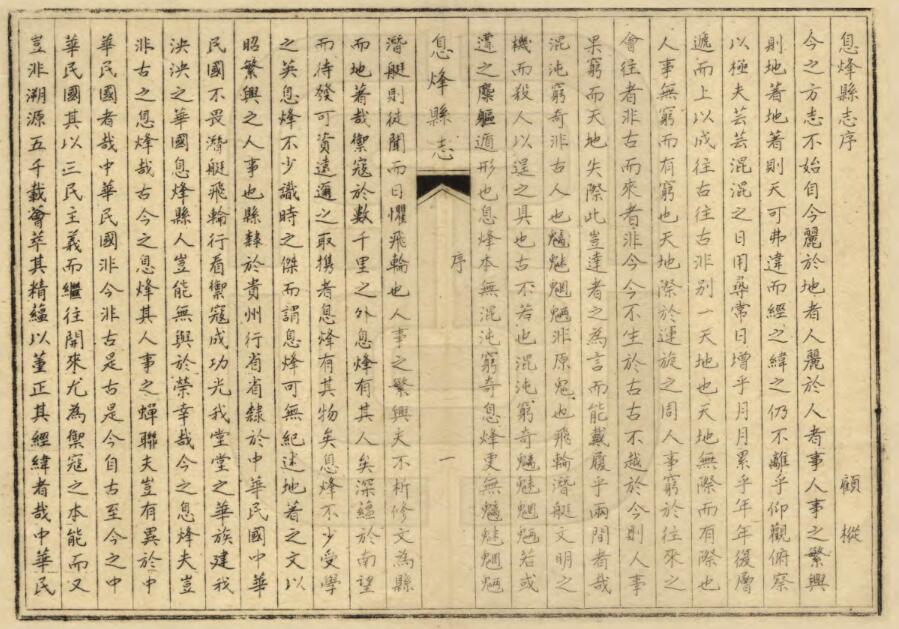 息烽縣志序
顧樅
今之方志不始自今麗於地者人麗於人者事人事之繁興
則地著地著則天可弗違而經之緯之仍不離乎仰觀俯察
以極夫芸芸混混之日用尋常日增乎月月累乎年年復層
遞而上以成往古往古非別一天地也天地無際而有際也
人事無窮而有窮也天地際於運旋之周人事窮於往來之
會往者非古而來者非今今不生於古古不越於今則人事
果窮而天地失際此豈達者之為言而能載履乎兩間者哉
混沌窮奇非古人也魑魅魍魎非原鬼也飛輪潛艇文明之
機而殺人以逞之具也古不若也混沌窮奇魑魅魍魎若或
遭之麋軀遁形也息烽本無混沌窮奇息烽更無魑魅魍魎
息烽縣志
序
一
潛艇則徒聞而日懼飛輪也人事之繁興夫不析修文為縣
而地著哉禦寇於數千里之外息烽有其人矣深蘊於南望
而待發可資遠邇之取携者息烽有其物矣息烽不少受學
之英息烽不少識時之傑而謂息烽可無紀述地著之文以
昭繁興之人事也縣隸於貴州行省省隸於中華民國中華
民國不畏潛艇飛輪行看禦寇成功光我堂堂之華族建我
泱泱之華國息烽縣人豈能無與於榮幸哉今之息烽夫豈
非古之息烽哉古今之息烽其人事之蟬聯夫豈有異於中
華民國者哉中華民國非今非古是古是今自古至今之中
華民國其以三民主義而繼往開來尤為禦寇之本能而又
豈非溯源五千載薈萃其精蘊以董正其經緯者哉中華民